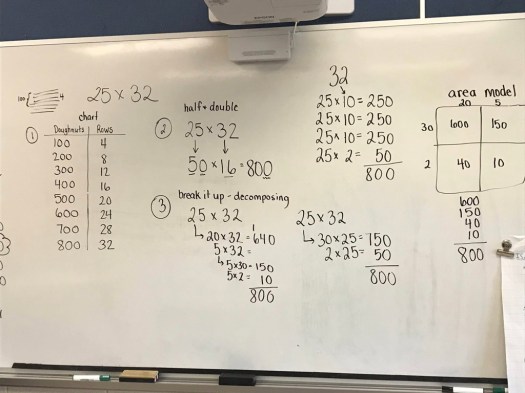 100 4
25 x 32
chart
① Doughnuts Rows
100 4
200 8
300 12
400 16
500 20
600 24
700 28
800 32
half + double
② 25 x 32
50 x 16 = 800
③ break it up - decomposing
25 x 32
20 x 32 = 640
5 x 32 =
5 x 30 = 150
5 x 2 = 10
800
32
25 x 10 = 250
25 x 10 = 250
25 x 10 = 250
25 x 2 = 50
800
25 x 32
30 x 25 = 750
2 x 25 = 50
800
area model
20 5
30 600 150
2 40 10
600
150
40
10
800